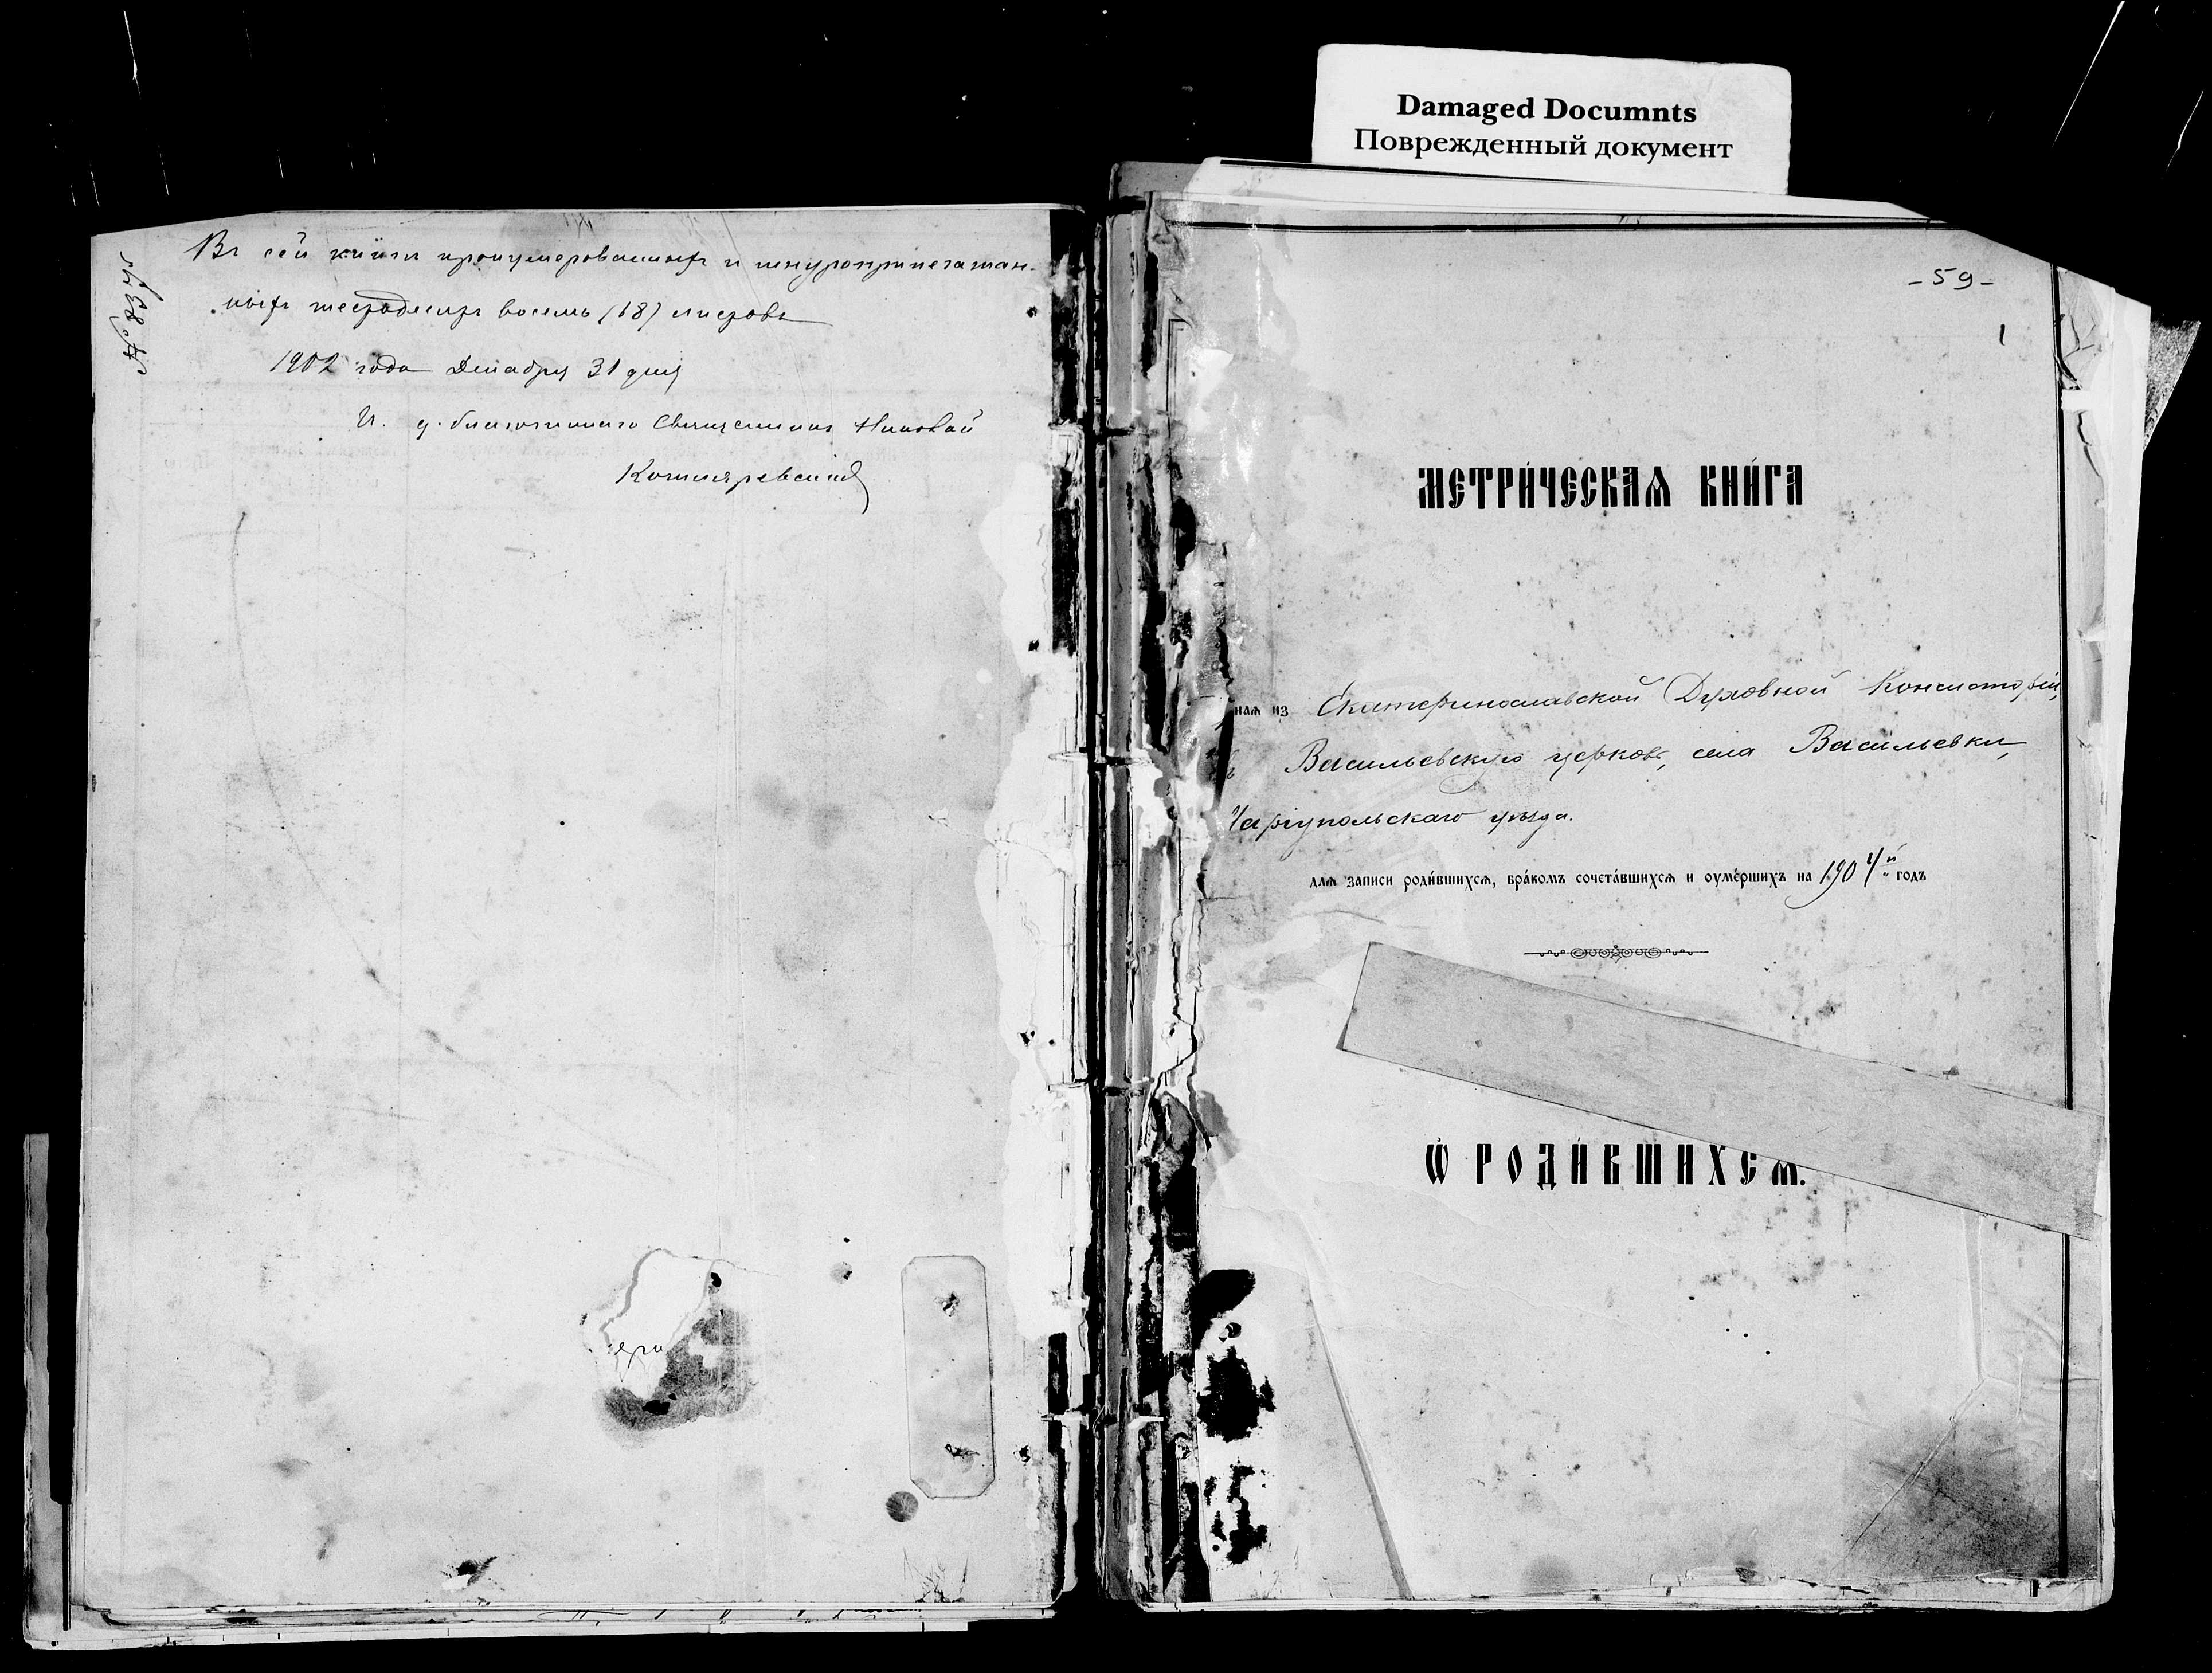 Damaged Documnts
Поврежденный документ
Въ сей книги пронумерованныхъ и шнуроприпечатан-
ныхъ шестьдесятъ восемь (68) листовъ
1902 года Декабря 31 дня
И. д. благочиннаго Священникъ Николай
Котляревскій
-59-
1
МЕТРИ́ЧЕСКАѦ КНИ́ГА
наѧ из Екатеринославской Духовной Консисторіи,
ъ Васильевскую церковь, села Васильевки,
Маріупольскаго уѣзда.
длѧ записи роди́вшихсѧ, бра́комъ сочета́вшихсѧ и оуме́ршихъ на 1904й годъ
Ѡ РОДИ́ВШИХСѦ.